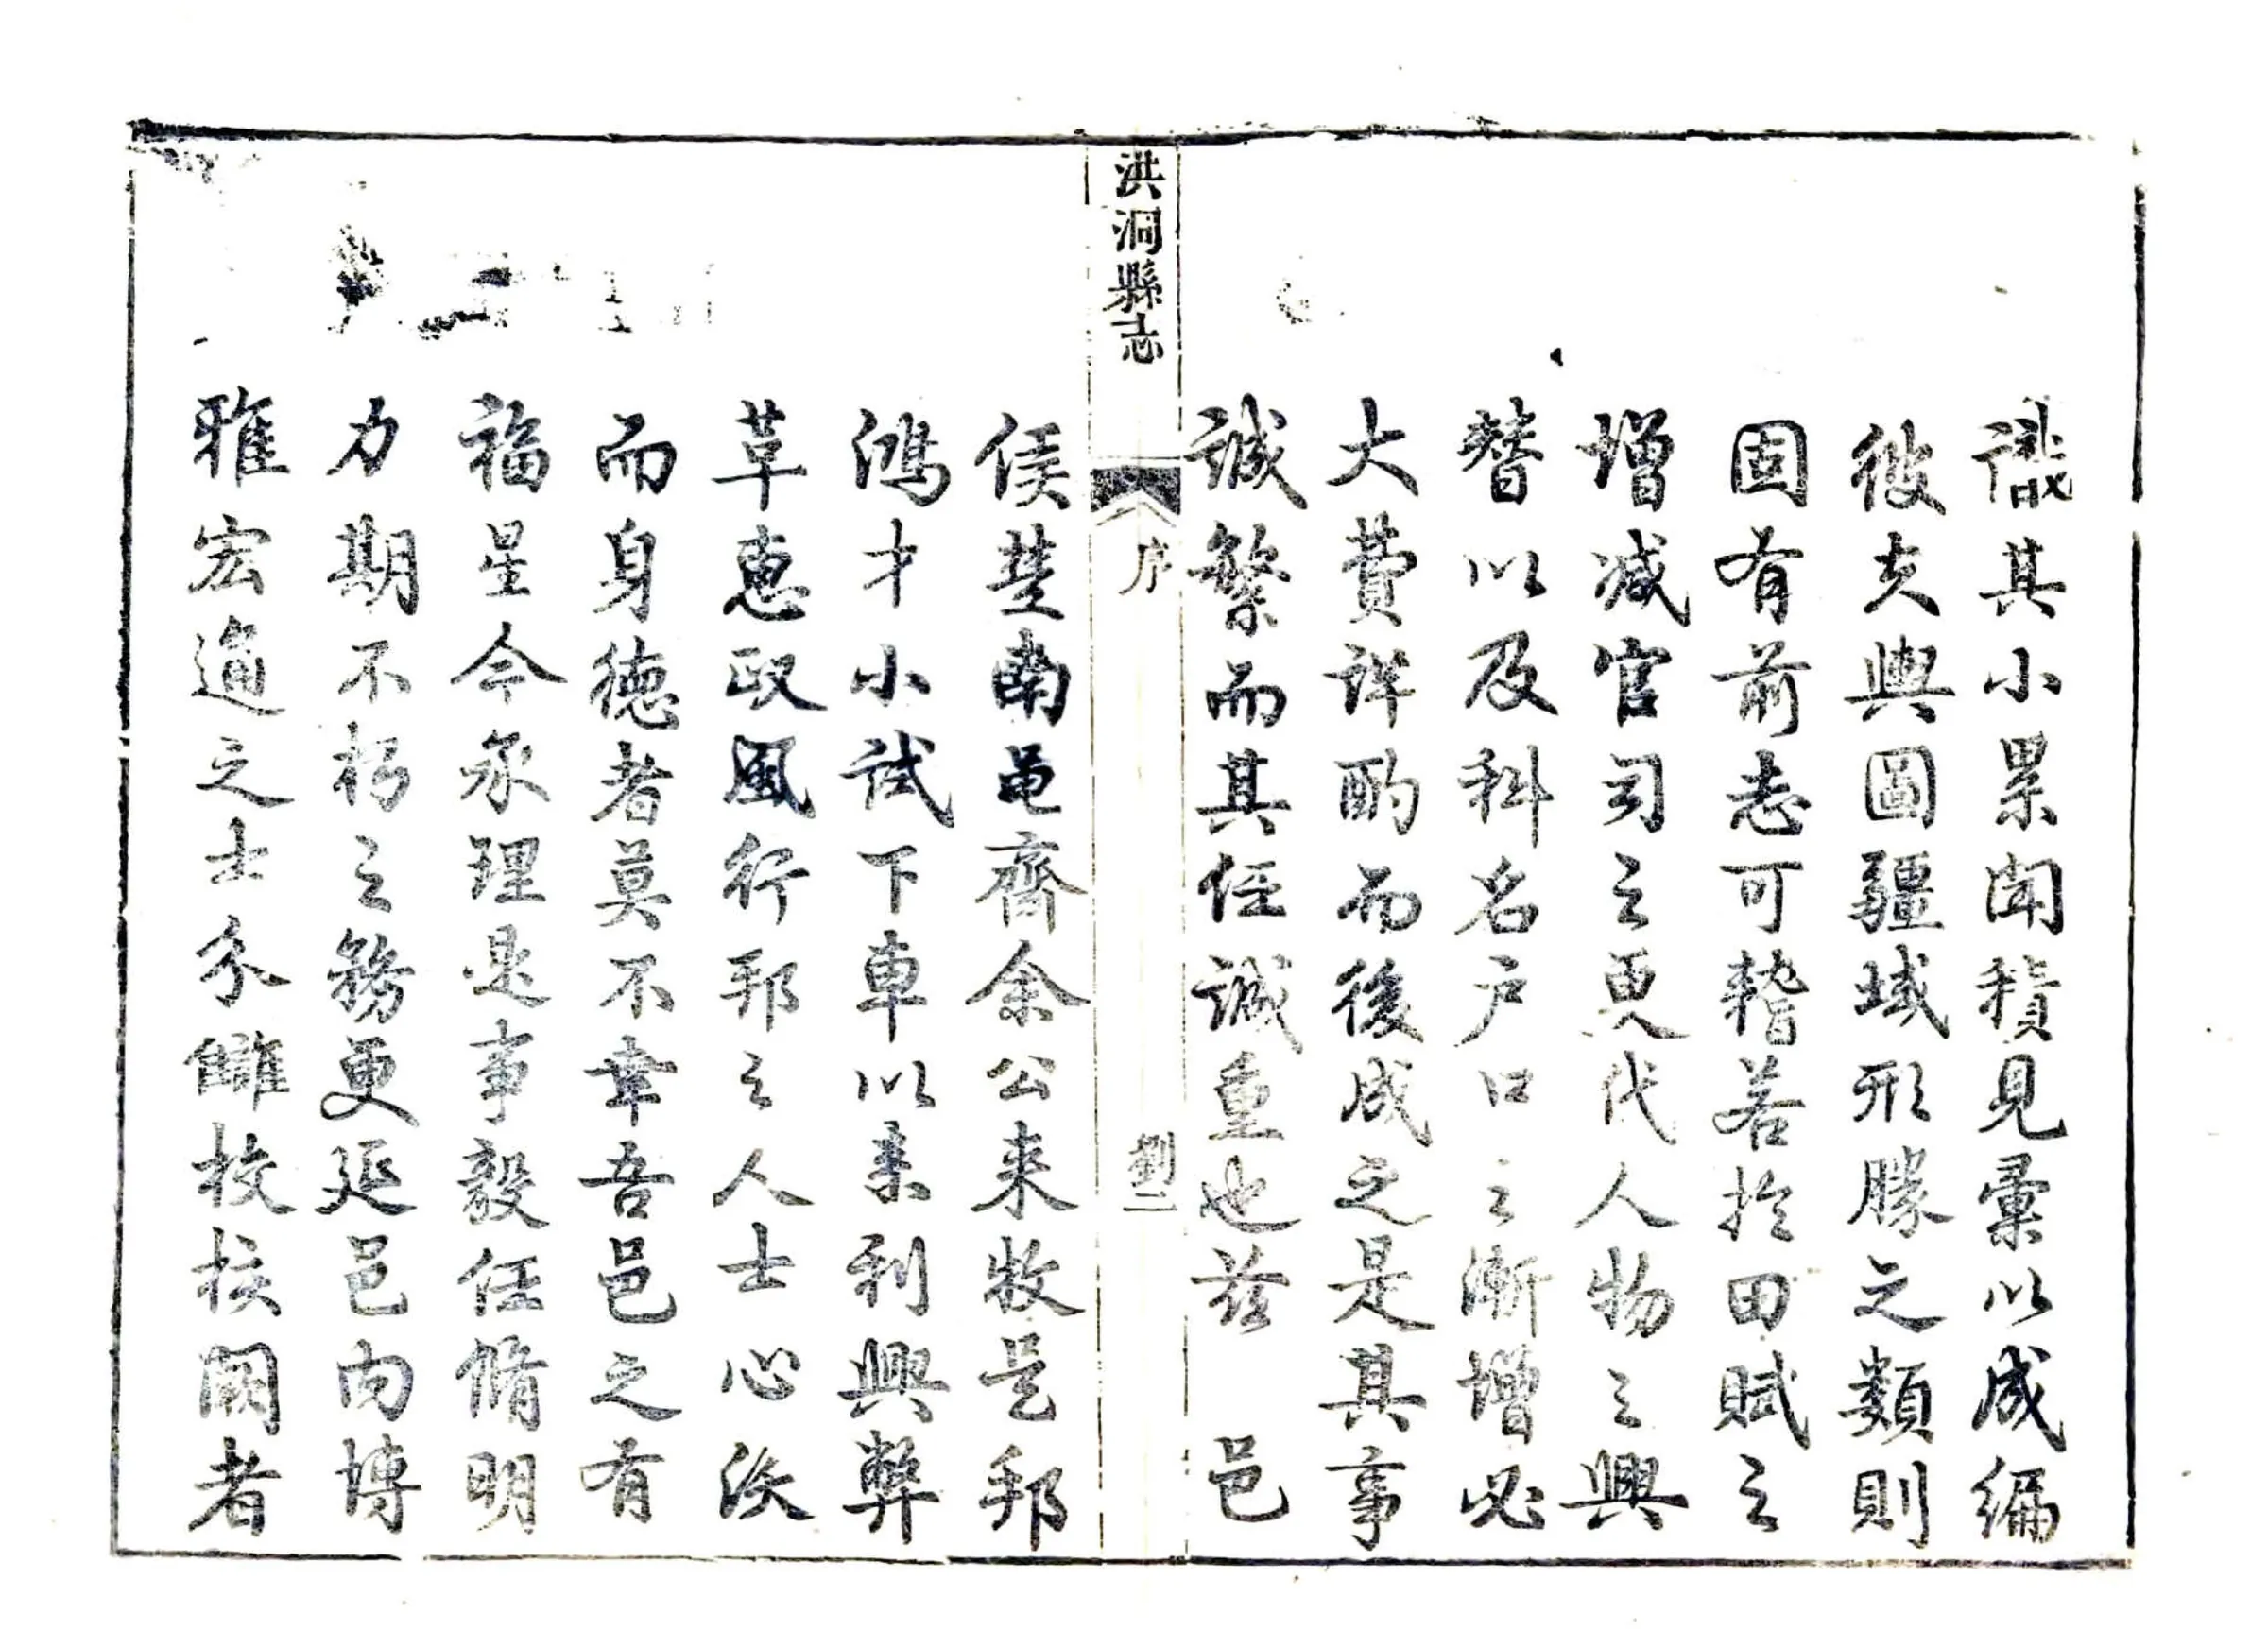 識其小累聞積見彙以成編
彼夫輿圖疆域形勝之類則
固有前志可稽若於田賦之
增減官司之更代人物之興
替以及科名户口之漸增必
大費詳酌而後成之是其事
誠繁而其任誠重也茲　邑
洪洞縣志
序
劉二
侯楚南黽齋余公来牧是邦
鴻才小試下車以来利興弊
革惠政風行邦之人士心浹
而身德者莫不幸吾邑之有
福星今承理是事毅任脩明
力期不朽之務更延邑内博
雅宏通之士分讎校核闕者